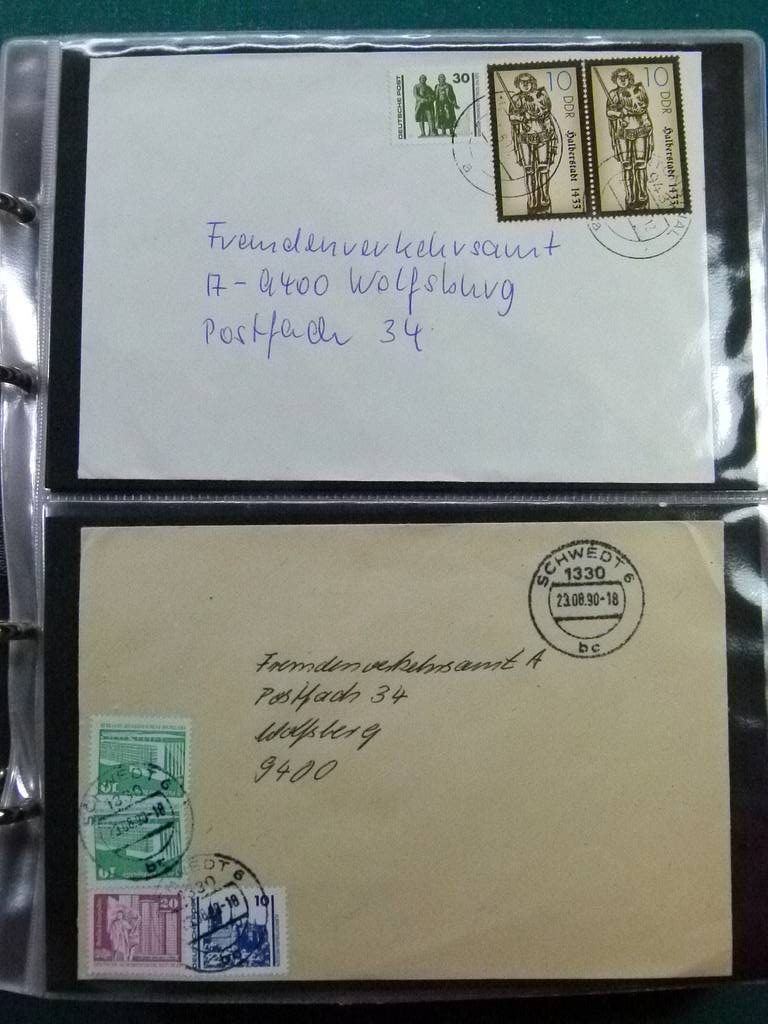 DEUTSCHE POST
30
10 DDR
Halberstadt 1433
10 DDR
Halberstadt 1433
Fremdenverkehrsamt
A-9400 Wolfsburg
Postfach 34
SCHWEDT 6
1330
23.08.90-18
bc
Fremdenverkehrsamt A
Postfach 34
Wolfsberg
9400
10
SCHWEDT 6
1330
23.08.90-18
bc
10
SCHWEDT 6
1330
20
10
DEUTSCHE POST